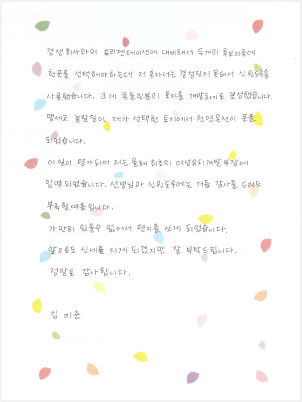 경쟁 회사와의 프리젠테이션에 대비해서 두개의 후보지중에
한곳을 선택해야하는데 저 혼자서는 결정짓지 못해서 신원도우를
사용했습니다. 크게 공동민원의 토지를 개발하기로 결정했습니다.
맹세코 놀랄일이 제가 선택한 토지에서 천연온천이 분출
되었습니다.
이 일이 평가되어 저는 올해 최초의 여성유치개발 부장에
임명되었습니다. 선생님과 신원도우에는 거듭 감사를 드려도
부족할따름입니다.
가만히 있을수 없어서 편지를 쓰게 되었습니다.
앞으로도 신세를 지게 되겠지만 잘 부탁드립니다.
정말로 감사합니다.
김 미준